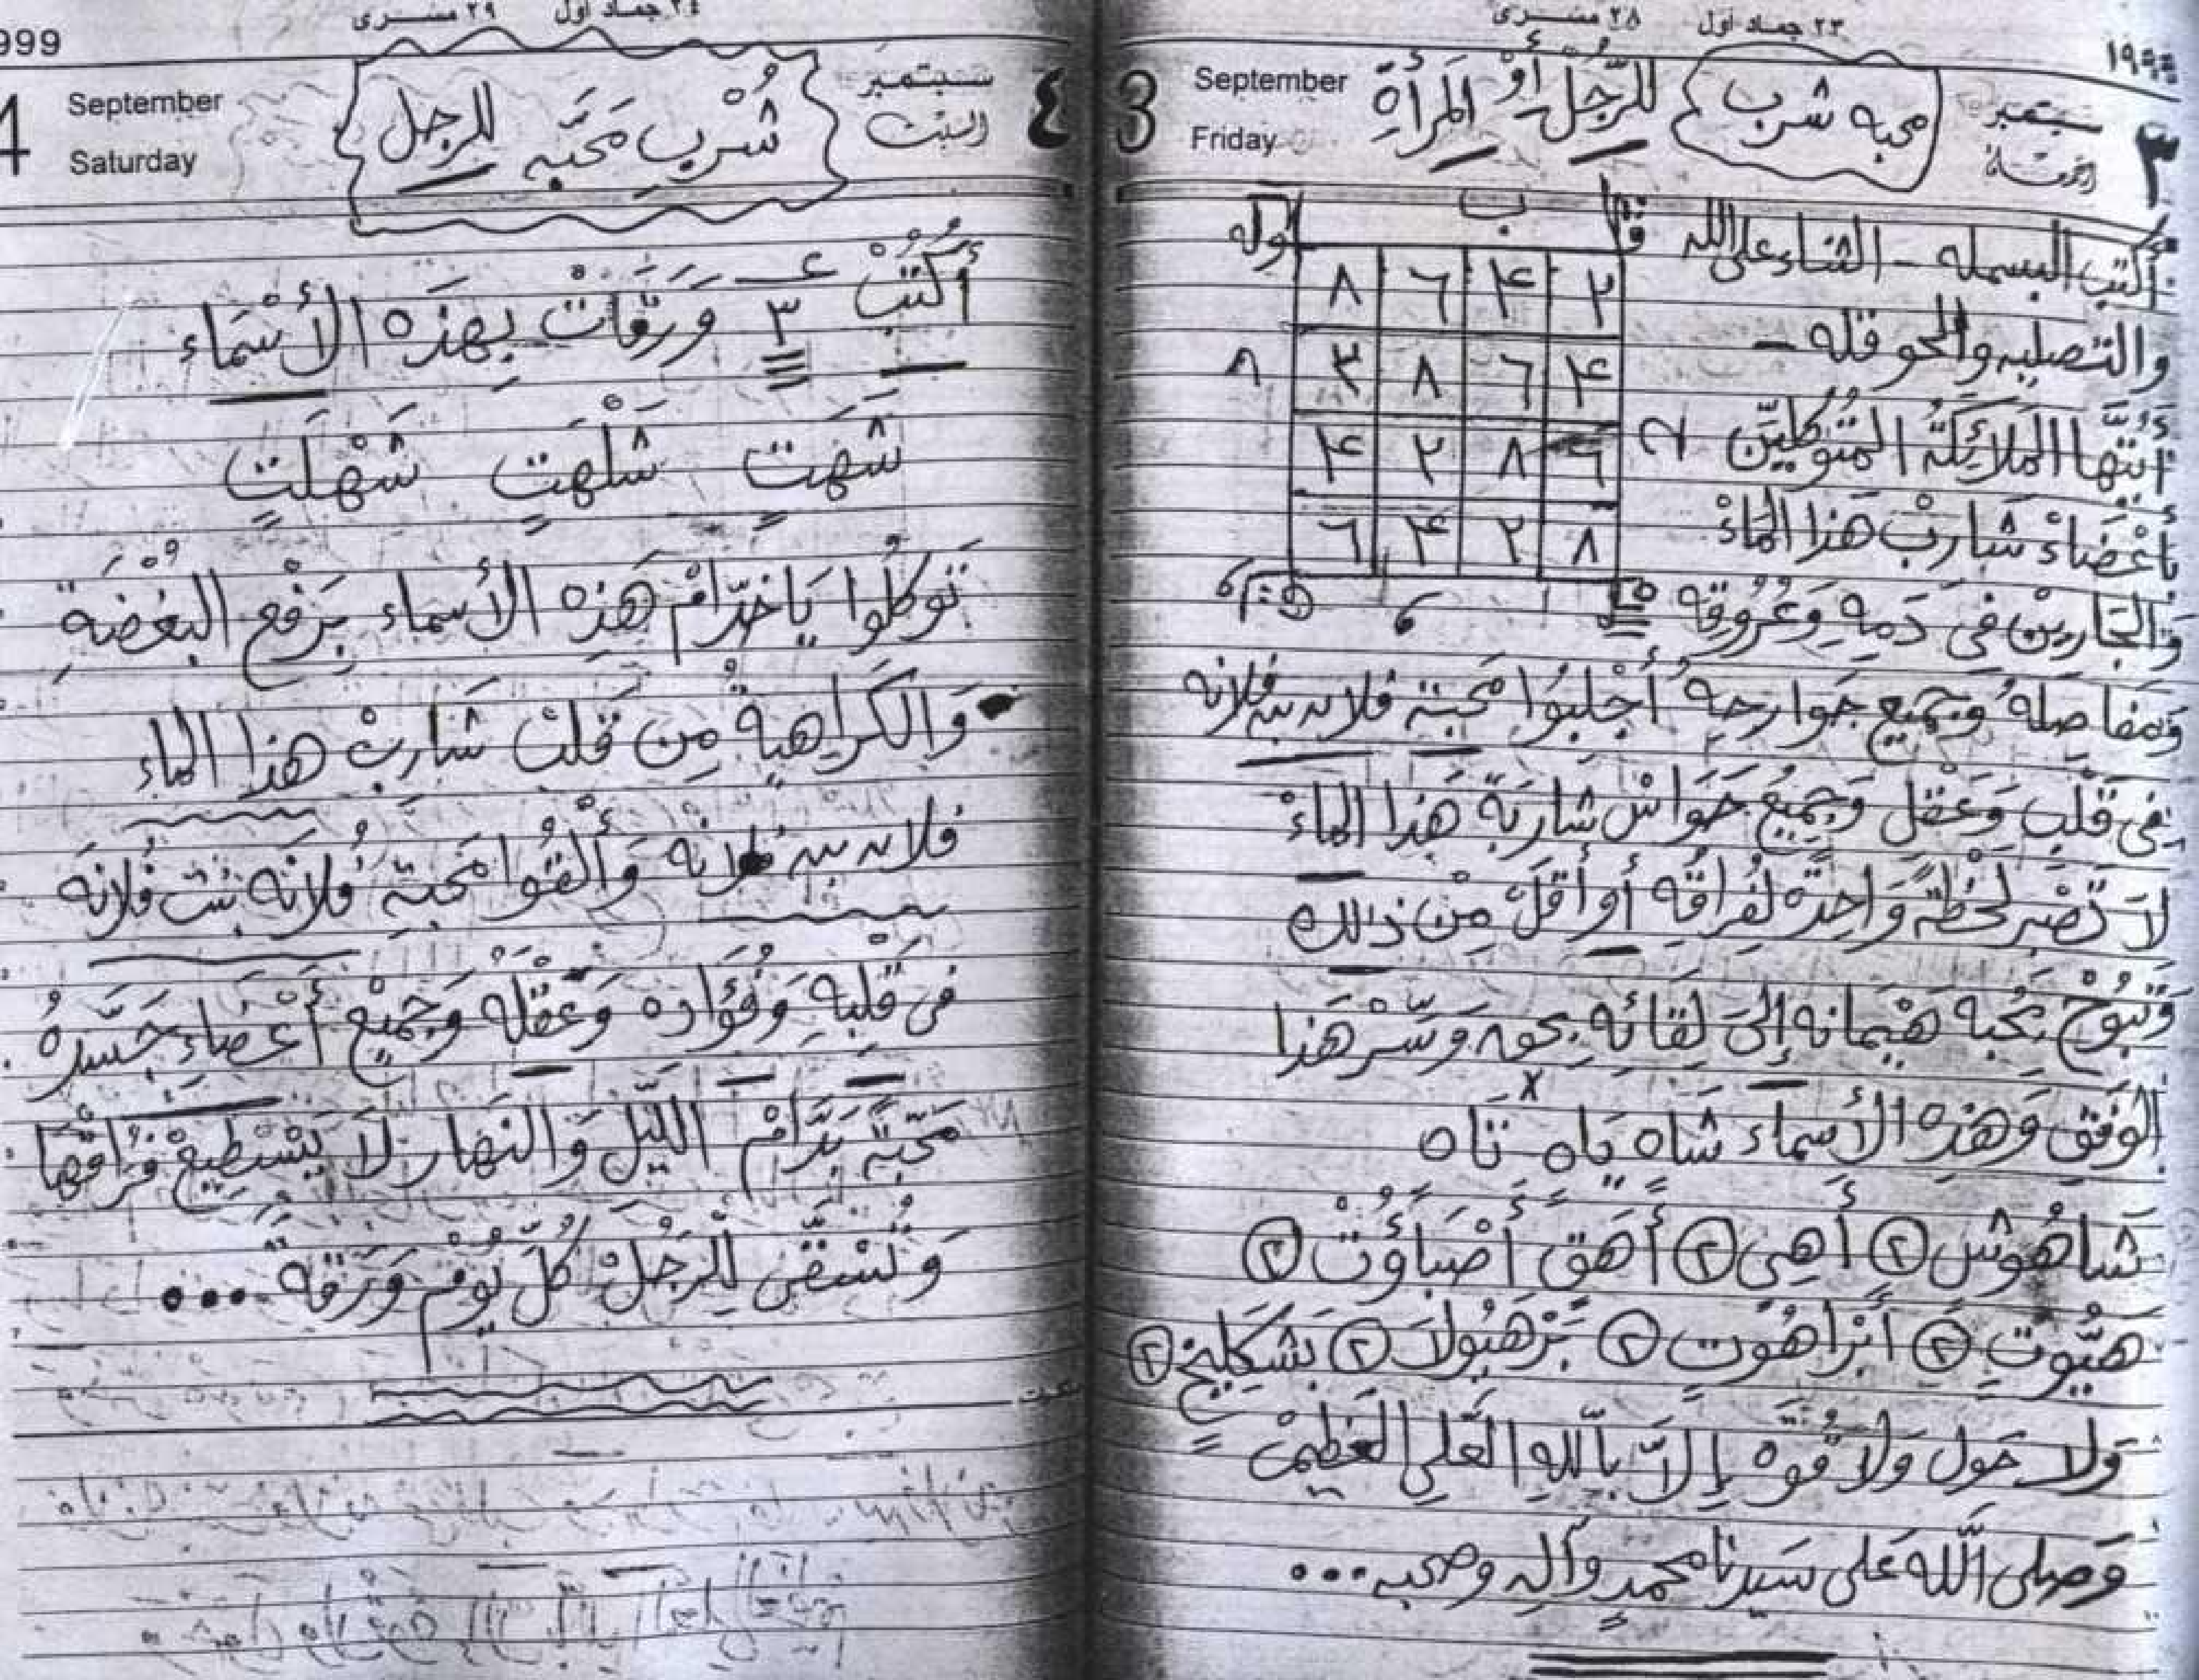 ٢٣ جماد أول ٢٨ مسرى
سبتمبر
الجمعة
٣
محبه شرب
للرَّجُل أَوْ المَرأَةِ
September
Friday
3
أكتب البسمله - الثناء على الله
والتصليه والحوقله -
ب
٢ ٤ ٦ ٨
٤ ٦ ٨ ٣
٦ ٨ ٢ ٤
٨ ٢ ٤ ٦
أيَّتُها المَلَائِكَةُ المُتَوَكِّلِينَ
بأعْضَاءْ شَارِبْ هَذا المَاءْ
وَالجَارِينْ فى دَمِهِ وَعُرُوقِهِ
وَمَفاصِلِهُ وَجَمِيع جَوارِحِهِ أَجْلِبُوا مَحَبَة فلان بن فلانه
فى قَلْبِ وَعَقْلِ وَجَمِيعْ حَوَاسْ شارِبَة هَذا المَاءْ
لَا تَصْبِر لَحْظَةً وَاحِدَة لِفِرَاقِه أو أَقَلْ مِنْ ذلك
وَتَبُوحْ بِحُبه هَيْمانه إلى لِقَائِهِ بحق وَسِّرْ هَذا
الوَفْق وَهَذِه الأَسماء شَاه يَاه تَاه
شَاهُوش ٢ أَهِى ٢ أَهَق أَصْبَاؤُتْ ٢
هيُّوت ٢ أبْرَاهُوتٍ ٢ بَرْهَبُولَا ٢ بَشكَليخ ٢
وَلا حَول وَلَا قُوه إلَّا بِاللهِ العَلِى العَظِيمْ
وَصلى اللَّه عَلى سَيدنا محمدٍ وآلِهِ وصحبه...
٢٤ جماد أول ٢٩ مسرى
سبتمبر
السبت
٤
شُرْب مَحَبَّه للرجل
999
4
September
Saturday
أكْتُبْ ع ٣ وَرَقَاتْ بِهَذِه الأَسْمَاء
شَهَتٍ شَلْهَتٍ شَهْلَتٍ
تَوَكَّلُوا يَاخُدّامْ هَذِه الأسماء بِرَفْع البُغْضَةِ
وَالكَرَاهِيةْ مِن قَلبْ شَارِبْ هَذا الماء
فلان بن فلانه وَأَلْقُوا مَحَبة فُلَانَه بنت فُلَانَه
فى قَلْبِهِ وَفُؤَادِه وَعَقْلِهْ وَجَمِيْع أَعْضاء جَسَدِهُ
مَحَبَّةً بَدَوَامْ اللَّيْل وَالنَهَار لَا يَسْتَطِيعْ فِرَاقِهَا
وَتُسْقَى لِلرَجُلْ كُلّ يُومْ وَرَقَة ...